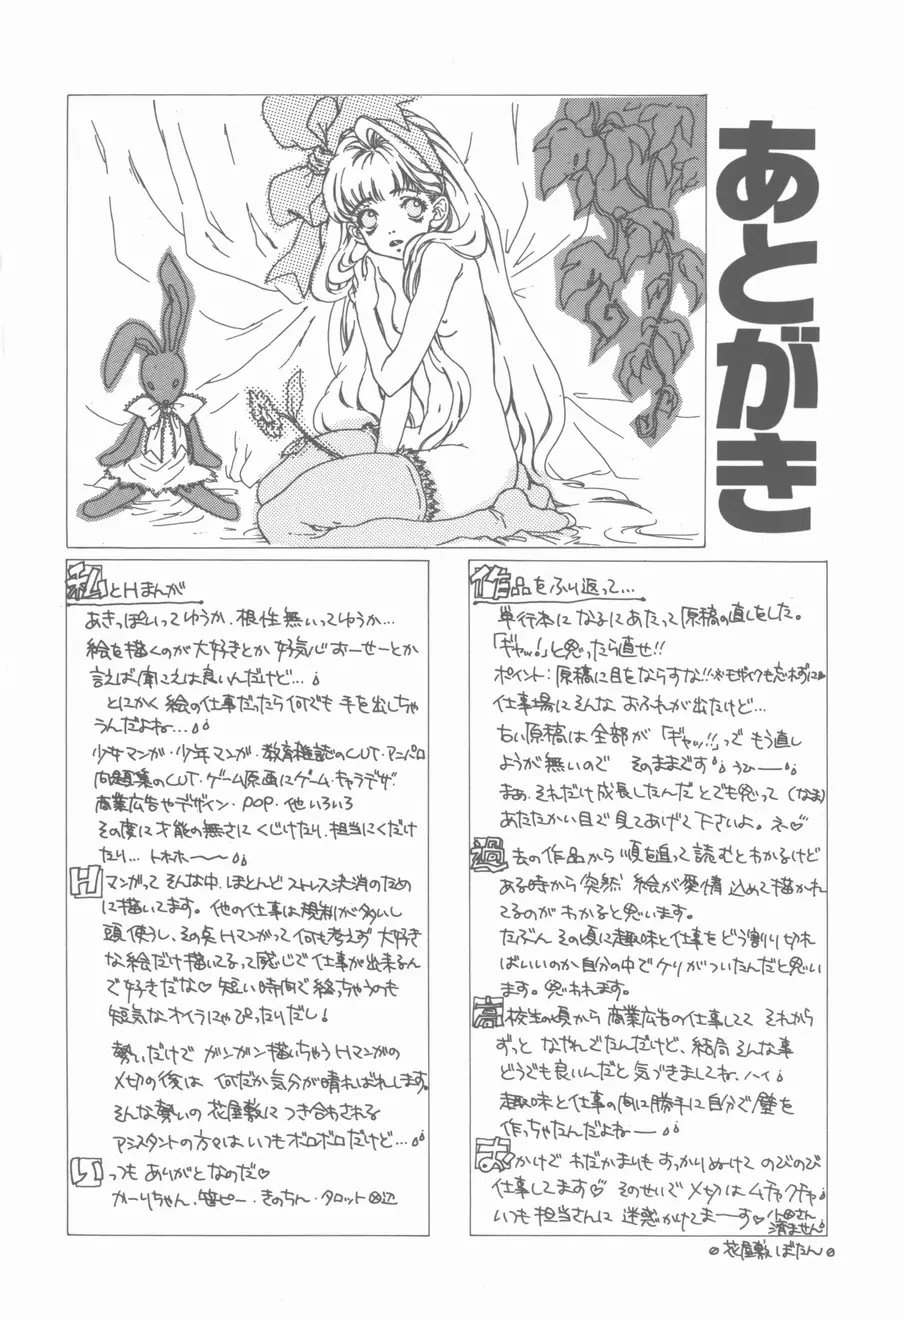 あとがき
私とHまんが
あきっぽいってゆうか、根性無いってゆうか…
絵を描くのが大好きとか好気心おーせーとか
言えば聞こえは良いんだけど…
とにかく絵の仕事だったら何でも手を出しちゃ
うんだよね…
少女マンガ・少年マンガ・教育雑誌のCUT・アニパロ
問題集のCUT・ゲーム原画にゲーム・キャラデザ
商業広告やデザイン・POP・他いろいろ
その度に才能の無さにくじけたり、担当にくだけ
たり… トホホ〜〜
Hマンガってそんな中、ほとんどストレス決消のため
に描いてます。他の仕事は規制が多いし
頭使うし、その点Hマンガって何も考えず大好き
な絵だけ描いてるって感じで仕事が出来るん
で好きだな♡ 短い時間で終っちゃうのも
短気なオイラにゃぴったりだし!
勢いだけでガンガン描いちゃうHマンガの
〆切の後は何だか気分が晴ればれします。
そんな勢いの花屋敷につき合わされる
アシスタントの方々はいつもボロボロだけど…
いつもありがとなのだ♡
かーりちゃん、笹ピー・きのちん・タロット
作品をふり返って…
単行本になるにあたって原稿の直しをした。
「ギャッ!」と思ったら直せ!!
ポイント:原稿に目をならすな!!※モザイクも忘れずに
仕事場にそんなおふれが出たけど…
古い原稿は全部が「ギャッ!!」っでもう直し
ようが無いので そのままです うひーー
まぁ、それだけ成長したんだとでも思って(なま)
あたたかい目で見てあげて下さいよ。ネ♡
過去の作品から順を追って読むとわかるけど
ある時から突然絵が愛情込めて描かれ
てるのがわかると思います。
たぶんその頃に趣味と仕事をどう割り切れ
ばいいのか自分の中でケリがついたんだと思い
ます。思われます。
高校生の頃から商業広告の仕事してて それから
ずっとなやんでたんだけど、結局そんな事
どうでも良いんだと気づきましてね、ハイ
趣味と仕事の間に勝手に自分で壁を
作っちゃたんだよね――
おかげでわだかまりもすっかりぬけてのびのび
仕事してます♡ そのせいで〆切はムチャクチャ
いつも担当さんに迷惑かけてまーーす♡ 小田さん
済ません。
花屋敷ぼたん